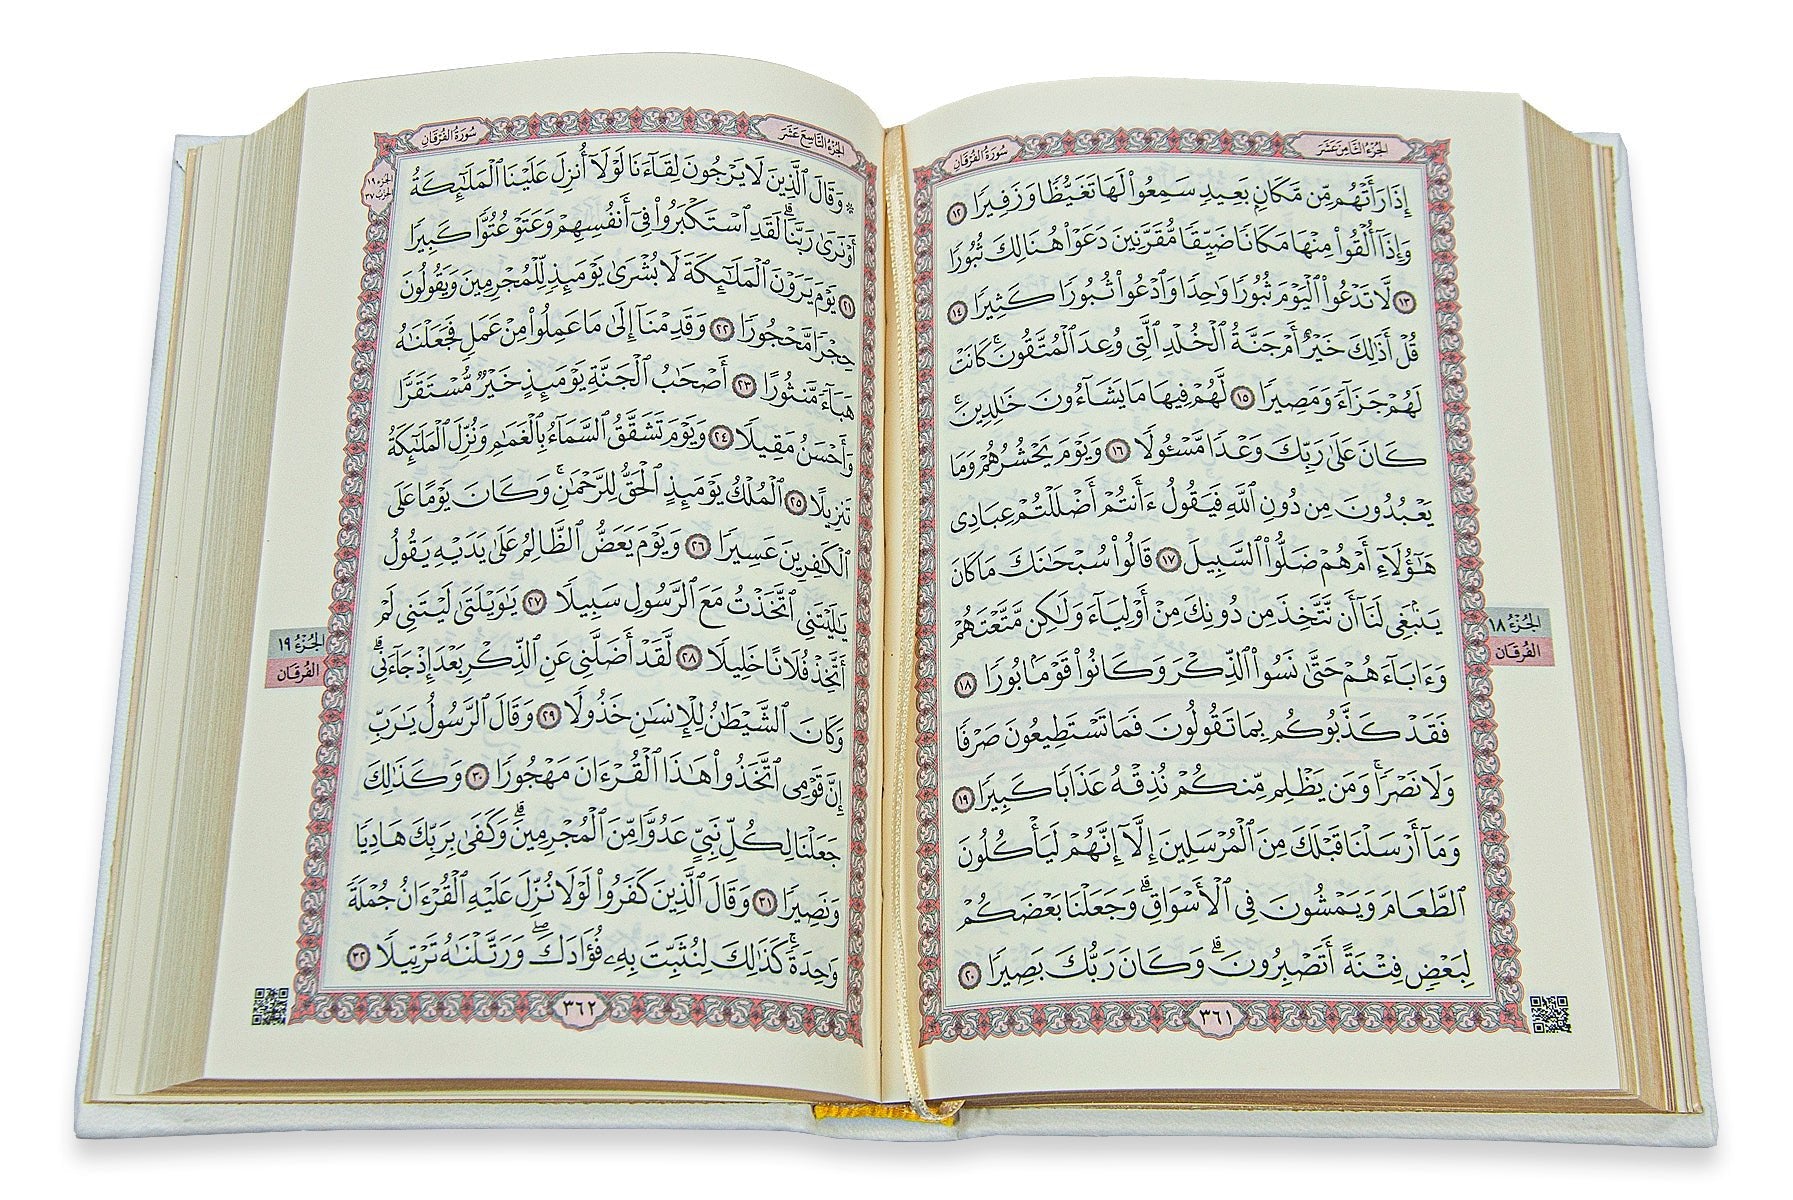 سُورَةُ الفُرْقَانِ
الجُزْءُ الثَّامِنَ عَشَرَ
إِذَا رَأَتْهُم مِّن مَّكَانِۭ بَعِيدٍ سَمِعُوا۟ لَهَا تَغَيُّظًا وَزَفِيرًا ١٢
وَإِذَآ أُلْقُوا۟ مِنْهَا مَكَانًا ضَيِّقًا مُّقَرَّنِينَ دَعَوْا۟ هُنَالِكَ ثُبُورًا
١٣ لَّا تَدْعُوا۟ ٱلْيَوْمَ ثُبُورًا وَٰحِدًا وَٱدْعُوا۟ ثُبُورًا كَثِيرًا ١٤
قُلْ أَذَٰلِكَ خَيْرٌ أَمْ جَنَّةُ ٱلْخُلْدِ ٱلَّتِى وُعِدَ ٱلْمُتَّقُونَ ۚ كَانَتْ
لَهُمْ جَزَآءً وَمَصِيرًا ١٥ لَّهُمْ فِيهَا مَا يَشَآءُونَ خَٰلِدِينَ ۚ
كَانَ عَلَىٰ رَبِّكَ وَعْدًا مَّسْـُٔولًا ١٦ وَيَوْمَ يَحْشُرُهُمْ وَمَا
يَعْبُدُونَ مِن دُونِ ٱللَّهِ فَيَقُولُ ءَأَنتُمْ أَضْلَلْتُمْ عِبَادِى
هَٰٓؤُلَآءِ أَمْ هُمْ ضَلُّوا۟ ٱلسَّبِيلَ ١٧ قَالُوا۟ سُبْحَٰنَكَ مَا كَانَ
يَنۢبَغِى لَنَآ أَن نَّتَّخِذَ مِن دُونِكَ مِنْ أَوْلِيَآءَ وَلَٰكِن مَّتَّعْتَهُمْ
وَءَابَآءَهُمْ حَتَّىٰ نَسُوا۟ ٱلذِّكْرَ وَكَانُوا۟ قَوْمًۢا بُورًا ١٨
فَقَدْ كَذَّبُوكُم بِمَا تَقُولُونَ فَمَا تَسْتَطِيعُونَ صَرْفًا
وَلَا نَصْرًا ۚ وَمَن يَظْلِم مِّنكُمْ نُذِقْهُ عَذَابًا كَبِيرًا ١٩
وَمَآ أَرْسَلْنَا قَبْلَكَ مِنَ ٱلْمُرْسَلِينَ إِلَّآ إِنَّهُمْ لَيَأْكُلُونَ
ٱلطَّعَامَ وَيَمْشُونَ فِى ٱلْأَسْوَاقِ ۗ وَجَعَلْنَا بَعْضَكُمْ
لِبَعْضٍ فِتْنَةً أَتَصْبِرُونَ ۗ وَكَانَ رَبُّكَ بَصِيرًا ٢٠
٣٦١
الجُزْءُ ١٨
الفُرْقَان
سُورَةُ الفُرْقَانِ
الجُزْءُ التَّاسِعَ عَشَرَ
الجزء ١٩
الحزب ٣٧
۞ وَقَالَ ٱلَّذِينَ لَا يَرْجُونَ لِقَآءَنَا لَوْلَآ أُنزِلَ عَلَيْنَا ٱلْمَلَٰٓئِكَةُ
أَوْ نَرَىٰ رَبَّنَا ۗ لَقَدِ ٱسْتَكْبَرُوا۟ فِىٓ أَنفُسِهِمْ وَعَتَوْ عُتُوًّا كَبِيرًا
٢١ يَوْمَ يَرَوْنَ ٱلْمَلَٰٓئِكَةَ لَا بُشْرَىٰ يَوْمَئِذٍ لِّلْمُجْرِمِينَ وَيَقُولُونَ
حِجْرًا مَّحْجُورًا ٢٢ وَقَدِمْنَآ إِلَىٰ مَا عَمِلُوا۟ مِنْ عَمَلٍ فَجَعَلْنَٰهُ
هَبَآءً مَّنثُورًا ٢٣ أَصْحَٰبُ ٱلْجَنَّةِ يَوْمَئِذٍ خَيْرٌ مُّسْتَقَرًّا
وَأَحْسَنُ مَقِيلًا ٢٤ وَيَوْمَ تَشَقَّقُ ٱلسَّمَآءُ بِٱلْغَمَٰمِ وَنُزِّلَ ٱلْمَلَٰٓئِكَةُ
تَنزِيلًا ٢٥ ٱلْمُلْكُ يَوْمَئِذٍ ٱلْحَقُّ لِلرَّحْمَٰنِ ۚ وَكَانَ يَوْمًا عَلَى
ٱلْكَٰفِرِينَ عَسِيرًا ٢٦ وَيَوْمَ يَعَضُّ ٱلظَّالِمُ عَلَىٰ يَدَيْهِ يَقُولُ
يَٰلَيْتَنِى ٱتَّخَذْتُ مَعَ ٱلرَّسُولِ سَبِيلًا ٢٧ يَٰوَيْلَتَىٰ لَيْتَنِى لَمْ
أَتَّخِذْ فُلَانًا خَلِيلًا ٢٨ لَّقَدْ أَضَلَّنِى عَنِ ٱلذِّكْرِ بَعْدَ إِذْ جَآءَنِى ۗ
وَكَانَ ٱلشَّيْطَٰنُ لِلْإِنسَٰنِ خَذُولًا ٢٩ وَقَالَ ٱلرَّسُولُ يَٰرَبِّ
إِنَّ قَوْمِى ٱتَّخَذُوا۟ هَٰذَا ٱلْقُرْءَانَ مَهْجُورًا ٣٠ وَكَذَٰلِكَ
جَعَلْنَا لِكُلِّ نَبِىٍّ عَدُوًّا مِّنَ ٱلْمُجْرِمِينَ ۗ وَكَفَىٰ بِرَبِّكَ هَادِيًا
وَنَصِيرًا ٣١ وَقَالَ ٱلَّذِينَ كَفَرُوا۟ لَوْلَا نُزِّلَ عَلَيْهِ ٱلْقُرْءَانُ جُمْلَةً
وَٰحِدَةً ۚ كَذَٰلِكَ لِنُثَبِّتَ بِهِۦ فُؤَادَكَ ۖ وَرَتَّلْنَٰهُ تَرْتِيلًا ٣٢
٣٦٢
الجُزْءُ ١٩
الفُرْقَان